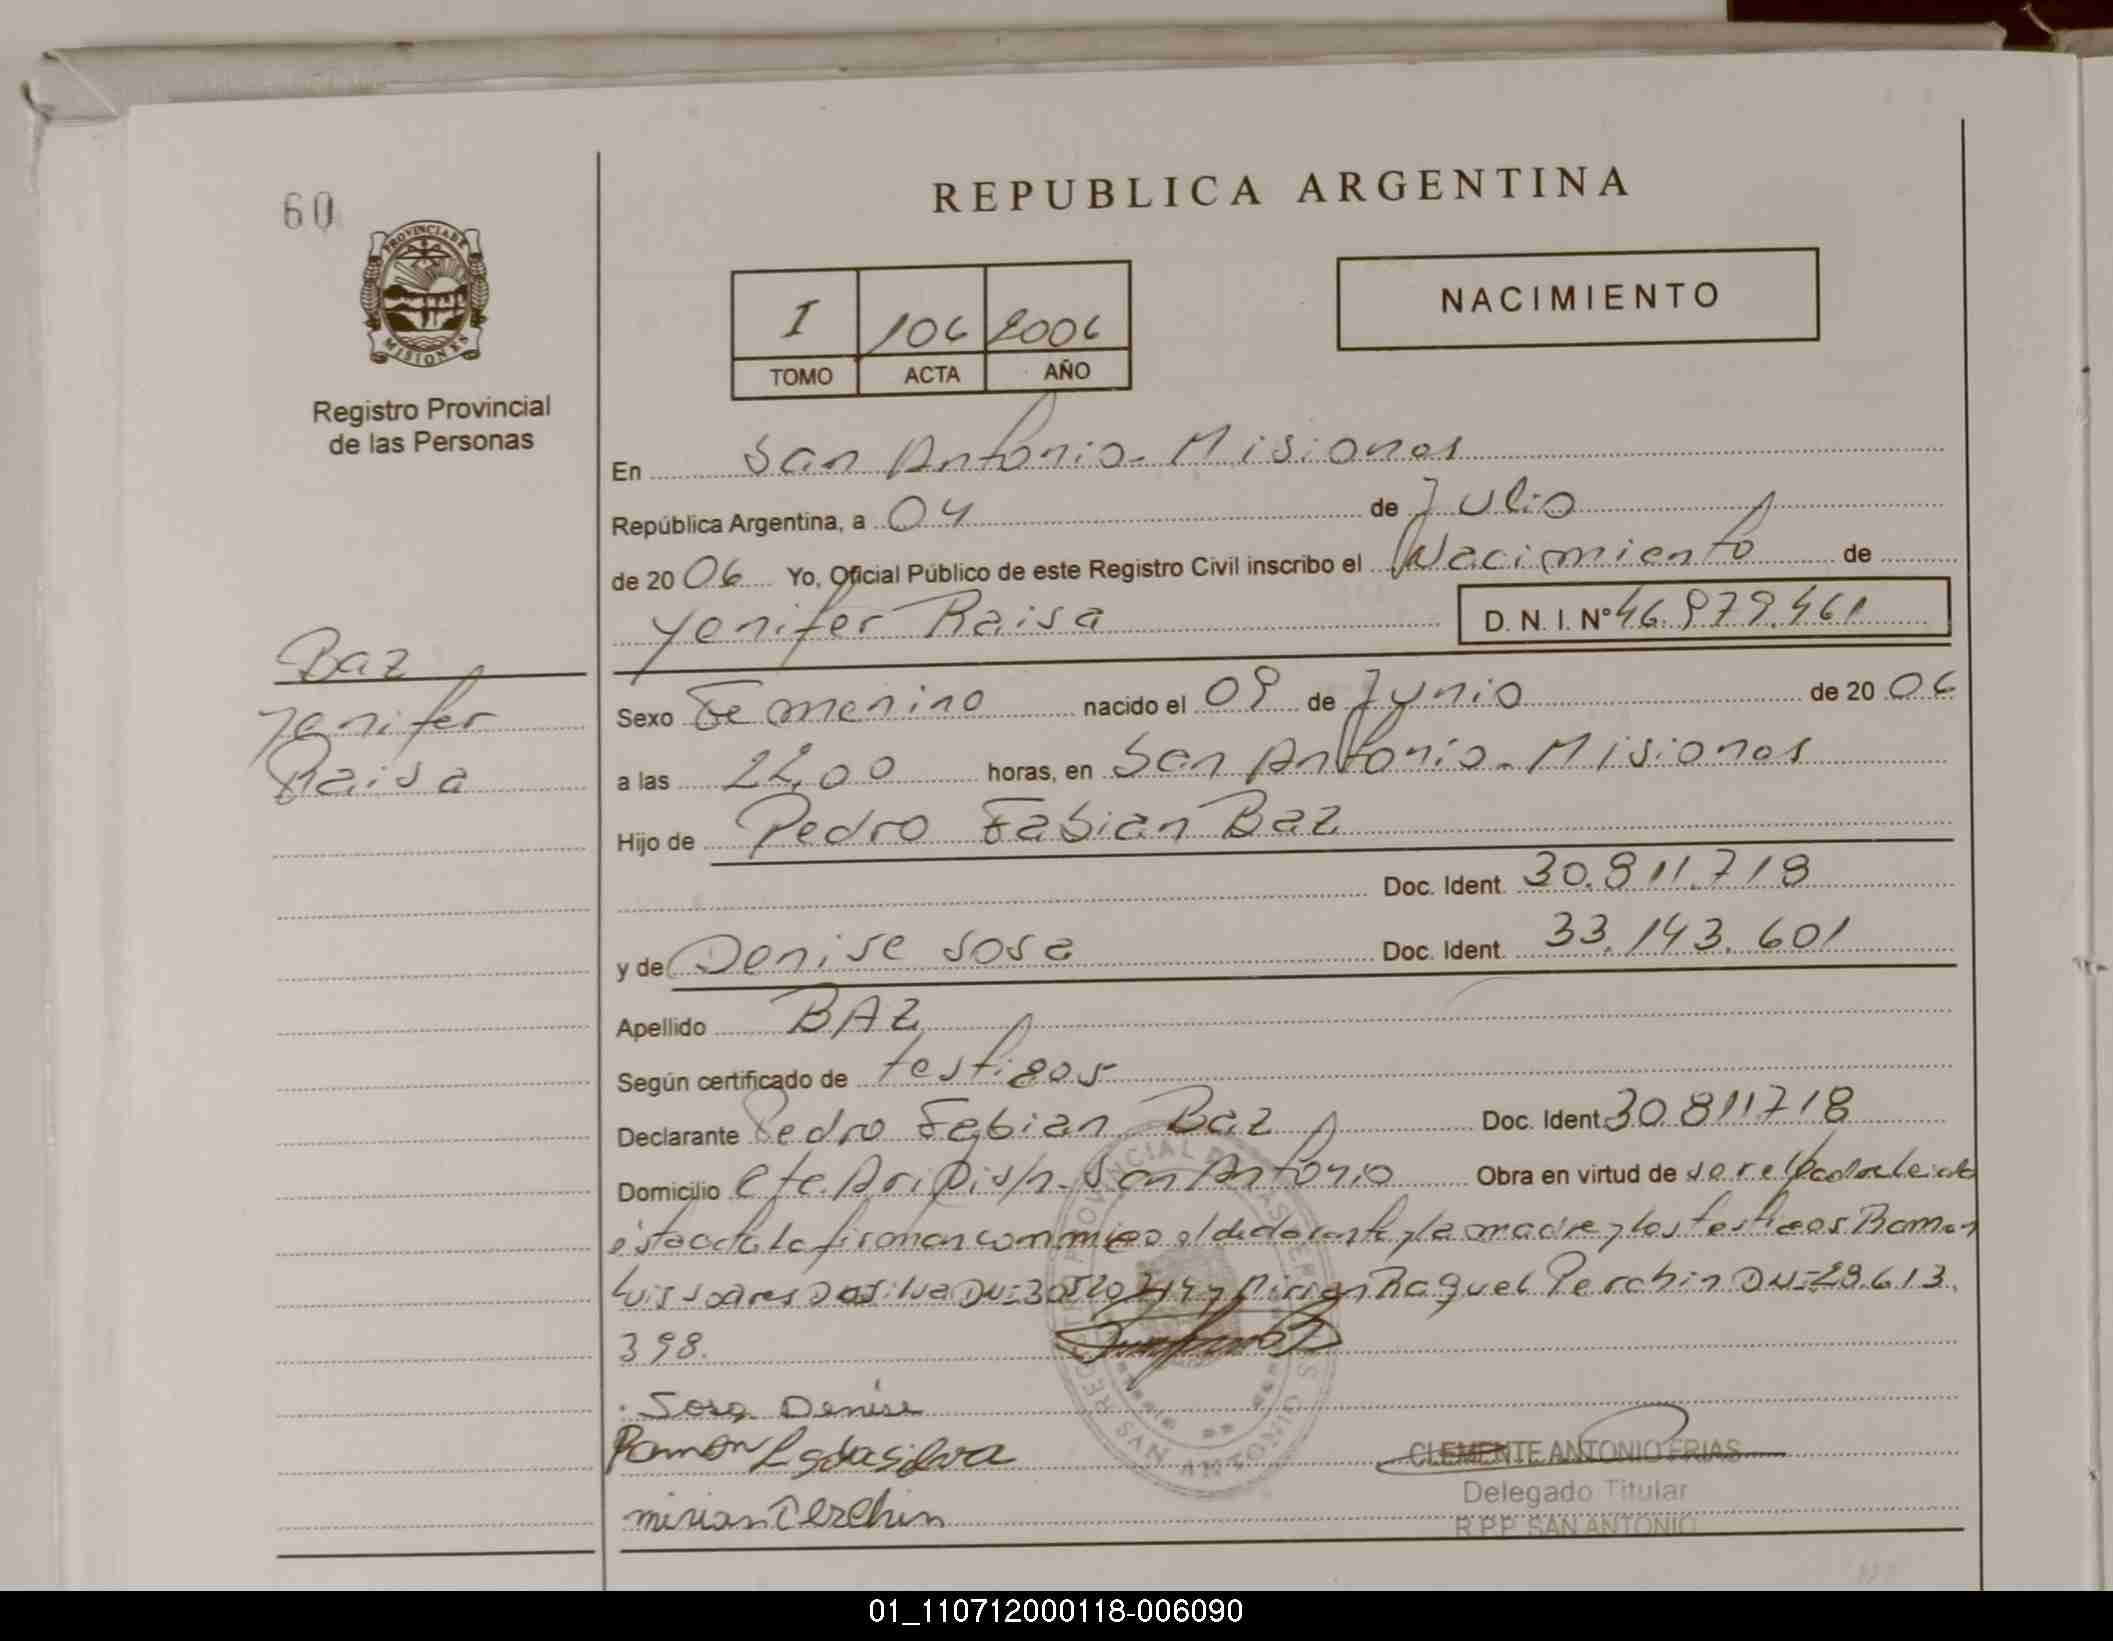 60
PROVINCIA DE
MISIONES
Registro Provincial
de las Personas
Baz
Yenifer
Raisa
REPUBLICA ARGENTINA
I 106 2006
TOMO ACTA AÑO
NACIMIENTO
En San Antonio - Misiones
República Argentina, a 04 de Julio
de 20 06 Yo, Oficial Público de este Registro Civil inscribo el Nacimiento de
Yenifer Raisa D. N. I. Nº 46.979.461
Sexo Femenino nacido el 09 de Junio de 20 06
a las 22,00 horas, en San Antonio - Misiones
Hijo de Pedro Fabian Baz
Doc. Ident. 30.811.718
y de Denise Sosa Doc. Ident. 33.143.601
Apellido BAZ
Según certificado de testigos
Declarante Pedro Fabian Baz Doc. Ident. 30.811718
Domicilio San Antonio Obra en virtud de ser el padre leida
esta acta la firman conmigo el declarante y la madre y los testigos Ramon
Luis Soares Da Silva DU= y Mirian Raquel Perchin DU=29.613.
398.
Sosa Denise
Ramon L s da silva
mirian Perchin
CLEMENTE ANTONIO FRIAS
Delegado Titular
R.P.P. SAN ANTONIO
01_110712000118-006090